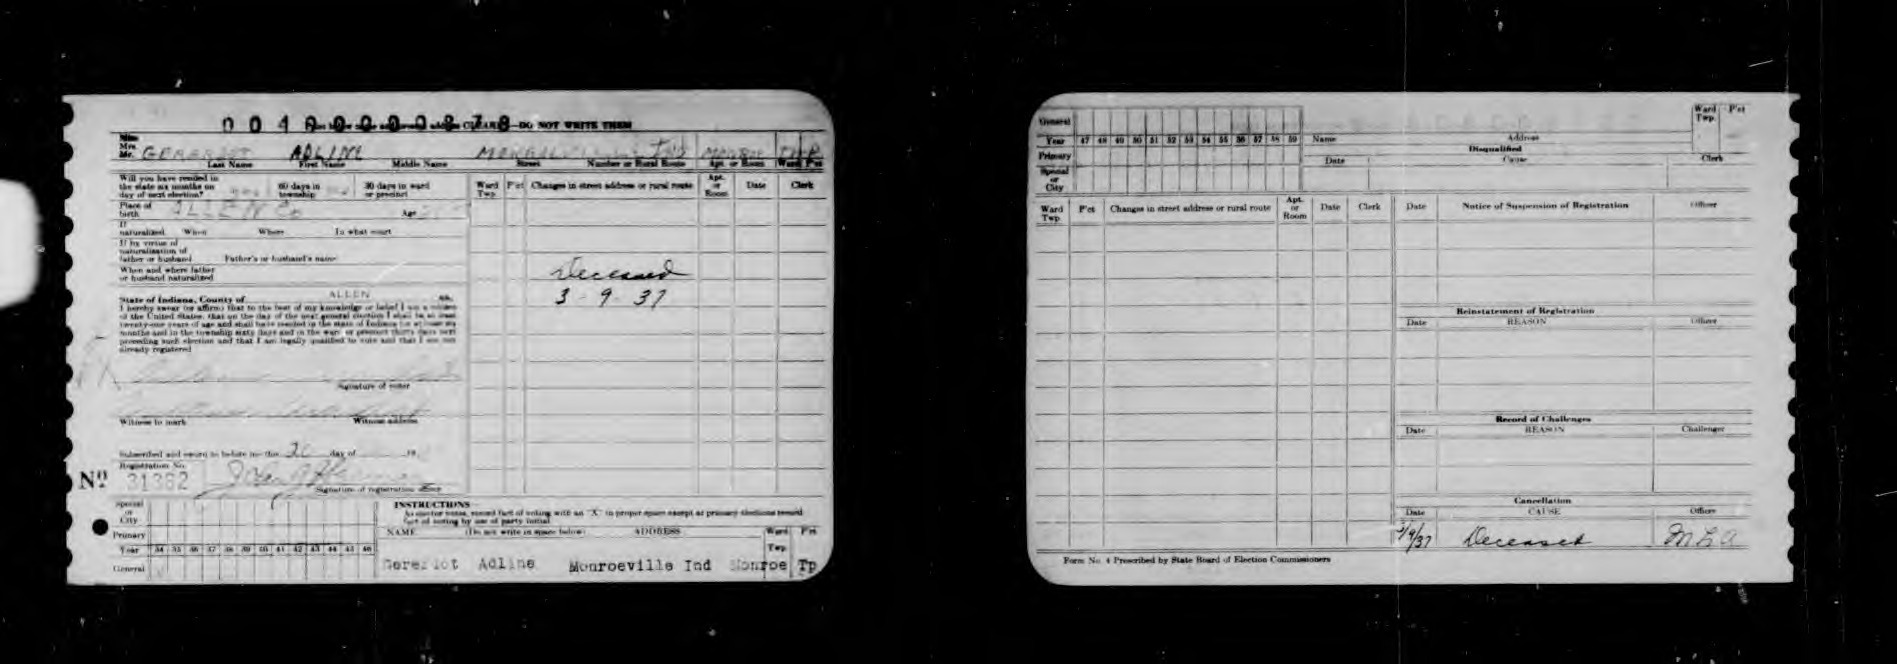 0040000878
CLEARLY—DO NOT WRITE THEM
Miss
Mrs.
Mr. GERARDOT ADLINE MONROEVILLE IND MONROE TWP
Last Name First Name Middle Name Street Number or Rural Route Apt. or Room Ward P'ct
Will you have resided in the state six months on day of next election? yes 60 days in township 30 days in ward or precinct
Place of birth ALLEN Co Age
If naturalized When Where In what court
If by virtue of naturalization of father or husband Father's or husband's name
When and where father or husband naturalized
State of Indiana, County of ALLEN ss.
I hereby swear (or affirm) that to the best of my knowledge or belief I am a citizen
of the United States; that on the day of the next general election I shall be at least
twenty-one years of age and shall have resided in the state of Indiana for at least six
months and in the township sixty days and in the ward or precinct thirty days next
preceding such election and that I am legally qualified to vote and that I am not
already registered
Signature of voter
Witness to mark Witness address
Subscribed and sworn to before me this 20 day of 19
Registration No.
Nº 31362
Signature of registration officer
Ward Twp. P'ct Changes in street address or rural route Apt. or Room Date Clerk
Deceased
3-9-37
Special or City
Primary
Year 34 35 36 37 38 39 40 41 42 43 44 45 46
General
INSTRUCTIONS
As elector votes, record fact of voting with an "X" in proper space except at primary elections record
fact of voting by use of party initial
NAME (Do not write in space below) ADDRESS Ward Twp. P'ct
Gerardot Adline Monroeville Ind Monroe Tp
General
Year 47 48 49 50 51 52 53 54 55 56 57 58 59
Primary
Special or City
Name Address Ward Twp. P'ct
Disqualified
Date Cause Clerk
Ward Twp. P'ct Changes in street address or rural route Apt. or Room Date Clerk
Date Notice of Suspension of Registration Officer
Reinstatement of Registration
Date REASON Officer
Record of Challenges
Date REASON Challenger
Cancellation
Date CAUSE Officer
3/9/37 Deceased M L A
Form No. 4 Prescribed by State Board of Election Commissioners